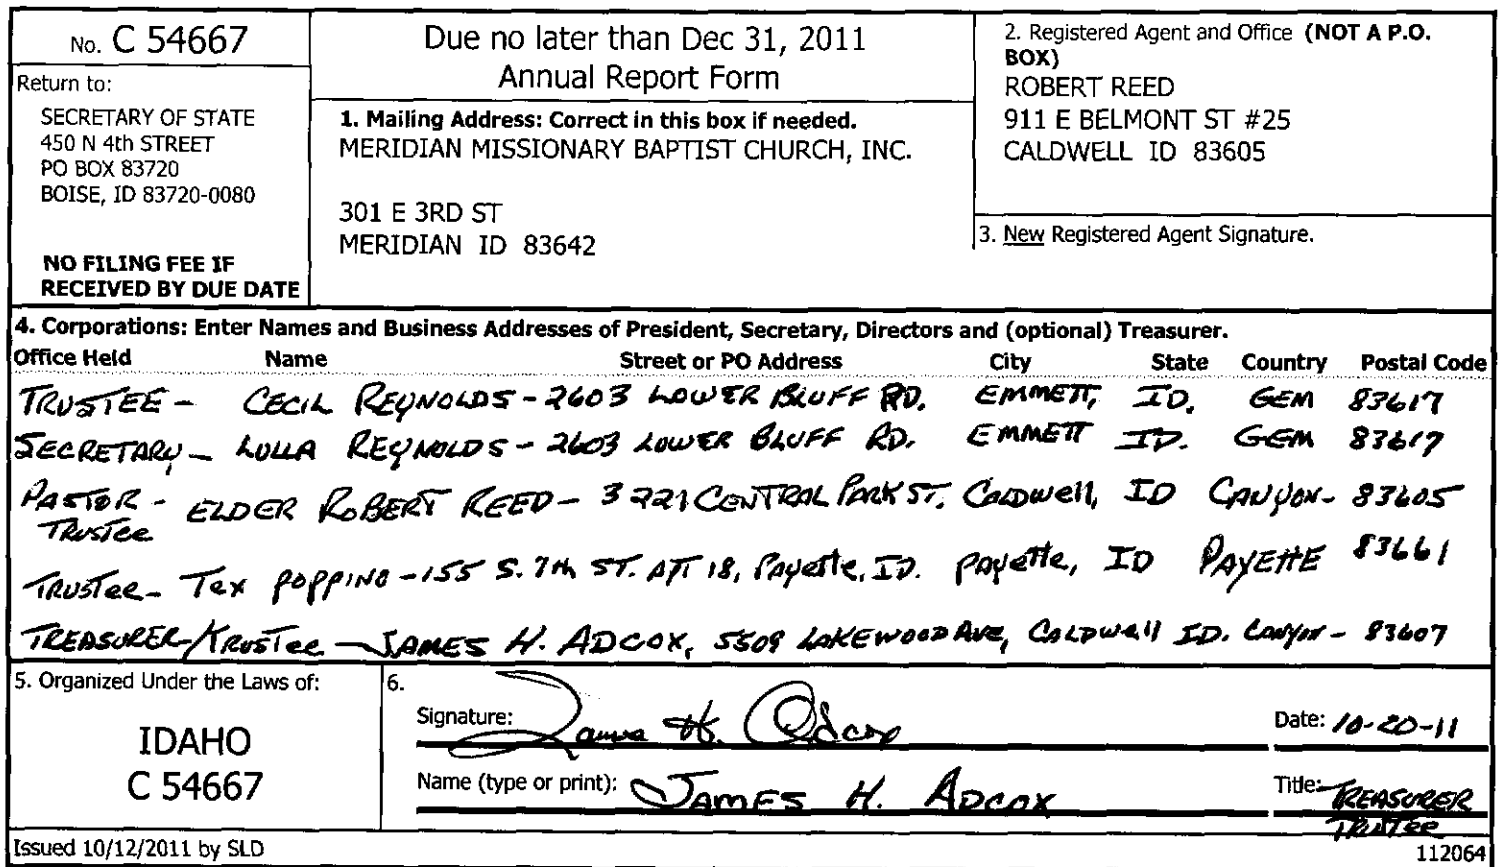 No. C 54667
Return to:
SECRETARY OF STATE
450 N 4th STREET
PO BOX 83720
BOISE, ID 83720-0080
NO FILING FEE IF
RECEIVED BY DUE DATE
Due no later than Dec 31, 2011
Annual Report Form
1. Mailing Address: Correct in this box if needed.
MERIDIAN MISSIONARY BAPTIST CHURCH, INC.
301 E 3RD ST
MERIDIAN ID 83642
2. Registered Agent and Office (NOT A P.O.
BOX)
ROBERT REED
911 E BELMONT ST #25
CALDWELL ID 83605
3. New Registered Agent Signature.
4. Corporations: Enter Names and Business Addresses of President, Secretary, Directors and (optional) Treasurer.
Office Held Name Street or PO Address City State Country Postal Code
TRUSTEE - CECIL REYNOLDS - 2603 LOWER BLUFF RD. EMMETT, ID. GEM 83617
SECRETARY - LULLA REYNOLDS - 2603 LOWER BLUFF RD. EMMETT ID. GEM 83617
PASTOR - ELDER ROBERT REED - 3221 CENTRAL PARK ST. Caldwell, ID CANYON - 83605
TRUSTEE
TRUSTEE - Tex POPPINO - 155 S. 7th ST. APT 18, Payette, ID. Payette, ID PAYETTE 83661
TREASURER/TRUSTEE - JAMES H. ADCOX, 5509 LAKEWOOD AVE, CALDWELL ID. Canyon - 83607
5. Organized Under the Laws of:
IDAHO
C 54667
6.
Signature: James H. Adcox Date: 10-20-11
Name (type or print): JAMES H. ADCOX Title: TREASURER
TRUSTEE
Issued 10/12/2011 by SLD
112064